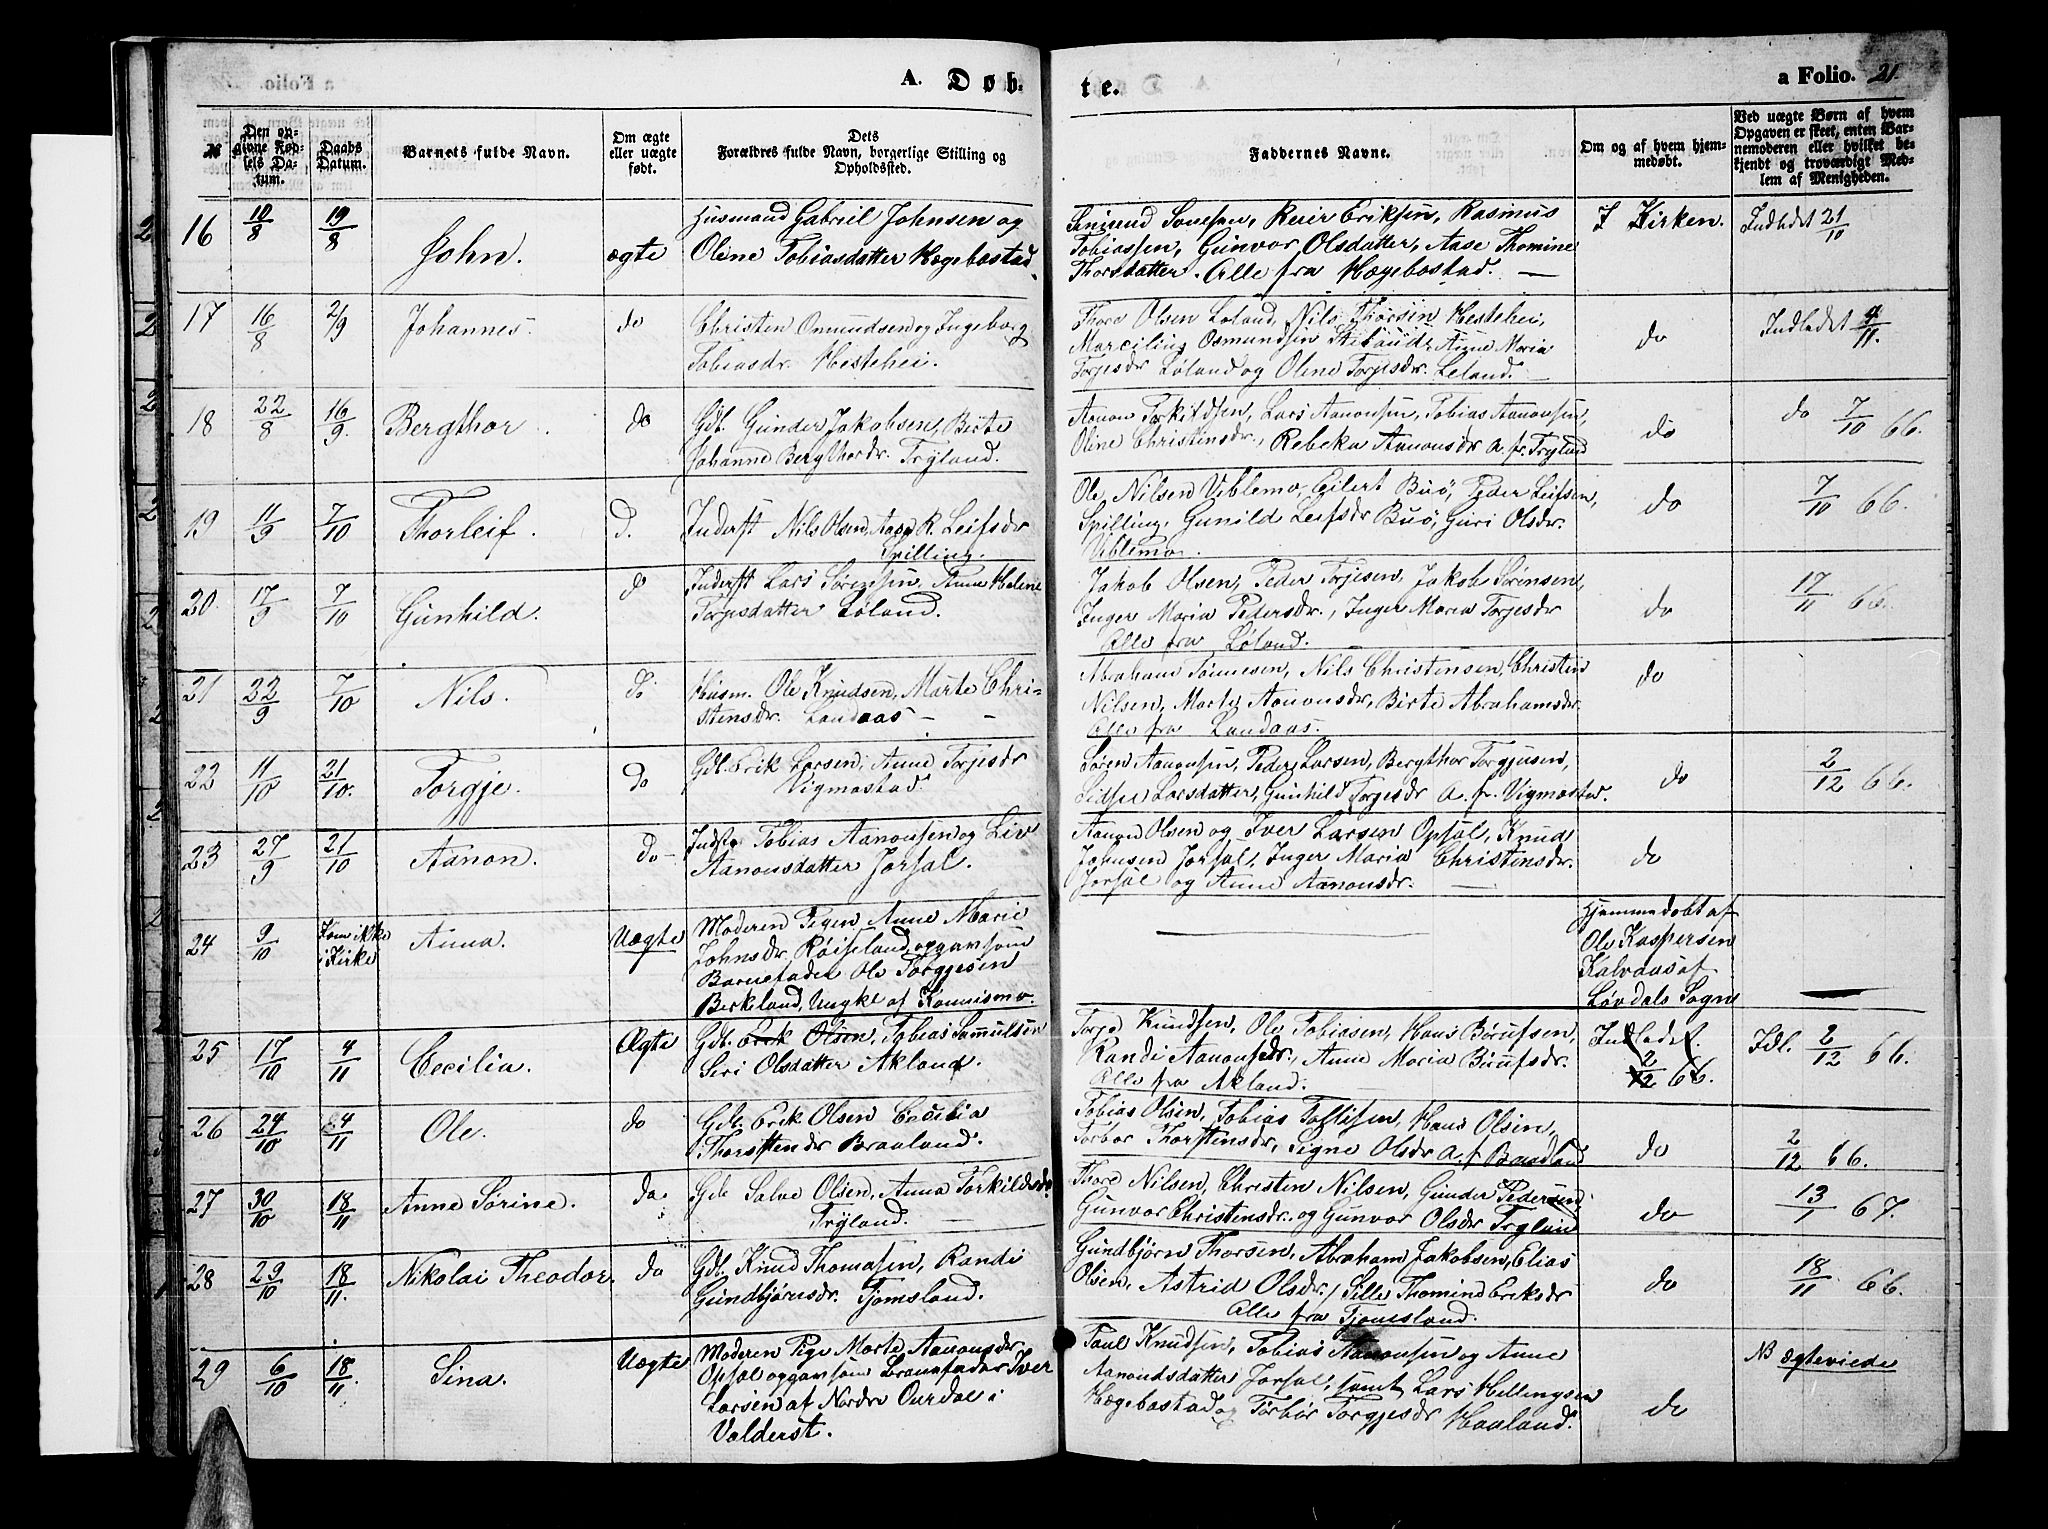 A. Døb-
te.
a Folio. 21.
№
Den op-
givne Fød-
sels Da-
tum.
Daabs
Datum.
Barnets fulde Navn.
Om ægte
eller uægte
født.
Dets
Forældres fulde Navn, borgerlige Stilling og
Opholdssted.
Faddernes Navne.
Om og af hvem hjem-
medøbt.
Ved uægte Børn af hvem
Opgaven er skeet, enten Bar-
nemoderen eller hvilket be-
kjendt og troværdigt Med-
lem af Menigheden.
16 10/8 19/8 John. ægte
Husmand Gabriel Johnsen og
Oline Tobiasdatter Hægebostad.
Rasmus
Tobiassen, Gunvor Olsdatter, Aase Thomine
Thorsdatter. Alle fra Hægebostad. —
I Kirken. Indledet 21/10
17 16/8 2/9 Johannes. do
Christen Omundsen og Ingeborg
Tobiasdr. Hestehei.
Thore Olsen Loland, Nils Thorsen Hestehei,
Osmundsen Anne Maria
Torjesdr Løland og Oline Torjesdr. Leland. —
do Indledet 9/11.
18 22/8 16/9. Bergthor. do
Gdb. Gunder Jakobsen, Birte
Johanne Bergthordr. Tryland.
Aanon Torkildsen, Lars Aanonsen, Tobias Aanonsen,
Oline Christensdr., Rebeka Aanonsdr A. fr. Tryland
do do 7/10 66.
19 11/9 7/10 Thorleif. d.
Inderst Nils Olsen, Aase R. Leifsdr
Spilling.
Ole Nilsen Viblemo, Eilert Buö, Peder Leifsen,
Spilling, Gunild Leifsdr Buö, Guri Olsdr.
Viblemo.
do 7/10 66.
20. 17/9 7/10 Gunhild. d
Inderst Lars Sørensen, Anne Helene
Torjesdatter Løland.
Jakob Olsen, Peder Torjesen, Jakob Sørensen,
Inger Maria Pedersdr., Inger Maria Torjesdr
Alle fra Løland.
do 17/11 66.
21 22/9 7/10 Nils. do
Husm. Ole Knudsen, Marte Chri-
stensdr. Landaas — —
Abraham Tønnesen, Nils Christensen, Christen
Nilsen, Marte Aanonsdr, Birte Abrahamsdr.
Alle fra Landaas.
do
22 11/10 21/10. Torgje. do
Gdb. Erik Larsen, Anne Torjesdr
Vigmostad.
Søren Aanonsen, Peder Larsen, Bergthor Torgjusen,
Larsdatter, Gunhild Torjesdr A. fr. Vigmostad.
do 2/12 66.
23 27/9 21/10 Aanon. do—
Indst. Tobias Aanonsen og Liv
Aanonsdatter Jorsal.
Aanon Olsen og Iver Larsen Opsal, Knud
Johnsen Jorsal, Inger Maria Christensdr.
Jorsal og Anne Aanonsdr. —
do
24 9/10 Kom ikke
i Kirke Anna. Uægte
Moderen Pigen Anne Marie
Johnsdr. Røiseland, opgav som
Barnefader Ole Torgjesen
Birkeland, Ungkl af Konnismo.
Hjemmedøbt af
Ole Kaspersen
Kalvaas af
Løvdals Sogn
25 17/10 4/11 Cecilia. Ægte
Gdb. Erik Olsen, Tobias Samuelsen
Siri Olsdatter Akland.
Torje Knudsen, Ole Tobiasen, Hans Børufsen,
Randi Aanonsdr., Anne Maria Børufsdr.
Alle fra Akland.
Indledet.
2/12 66. Idl. 2/12 66.
26 24/10 4/11 Ole. do
Gdb. Erik Olsen Cecilia
Thorstensdr Braaland.
Tobias Olsen, Tobias Hans Olsen,
Torbor Thorstensdr, Signe Olsdr A. f Braaland
do 2/12 66.
27 30/10 18/11 Anne Sørine. do.
Gdb Salve Olsen, Anna Torkildsdr
Tryland. —
Thore Nilsen, Christen Nilsen, Gunder Pedersen,
Gunvor Christensdr. og Gunvor Olsdr Tryland
do 13/1 67.
28 29/10 18/11. Nikolai Theodor. do
Gdb. Knud Thomasen, Randi
Gundbjørnsdr. Tjomsland.
Gundbjørn Thorsen, Abraham Jakobsen, Elias
Olsen, Astrid Olsdr., Sille Thomine Eriksdr
Alle fra Tjomsland.
do 18/11 66.
29 6/10 18/11. Sina. Uægte
Moderen Pige Marte Aanonsdr
Opsal opgav som Barnefader Iver
Larsen af Nordre Ourdal i
Valderst.
Paul Knudsen, Tobias Aanonsen og Anne
Aanonsdatter Jorsal, samt Lars Hellingsen
Hægebostad og Torbør Torgjesdr Haaland.
do NB ægteviede